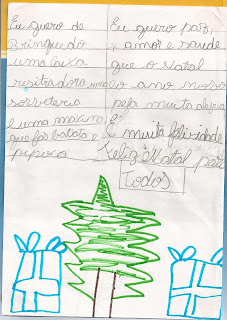 Eu quero de
Brinquedo
uma caixa
resitradora uma
sorveteria
e uma maxina
que fas batata e
pipoca
Eu quero paz,
amor e saude
que o Natal
e o ano novo
seja muita alegria
E muita felicidade
Feliz Natal para
Todos